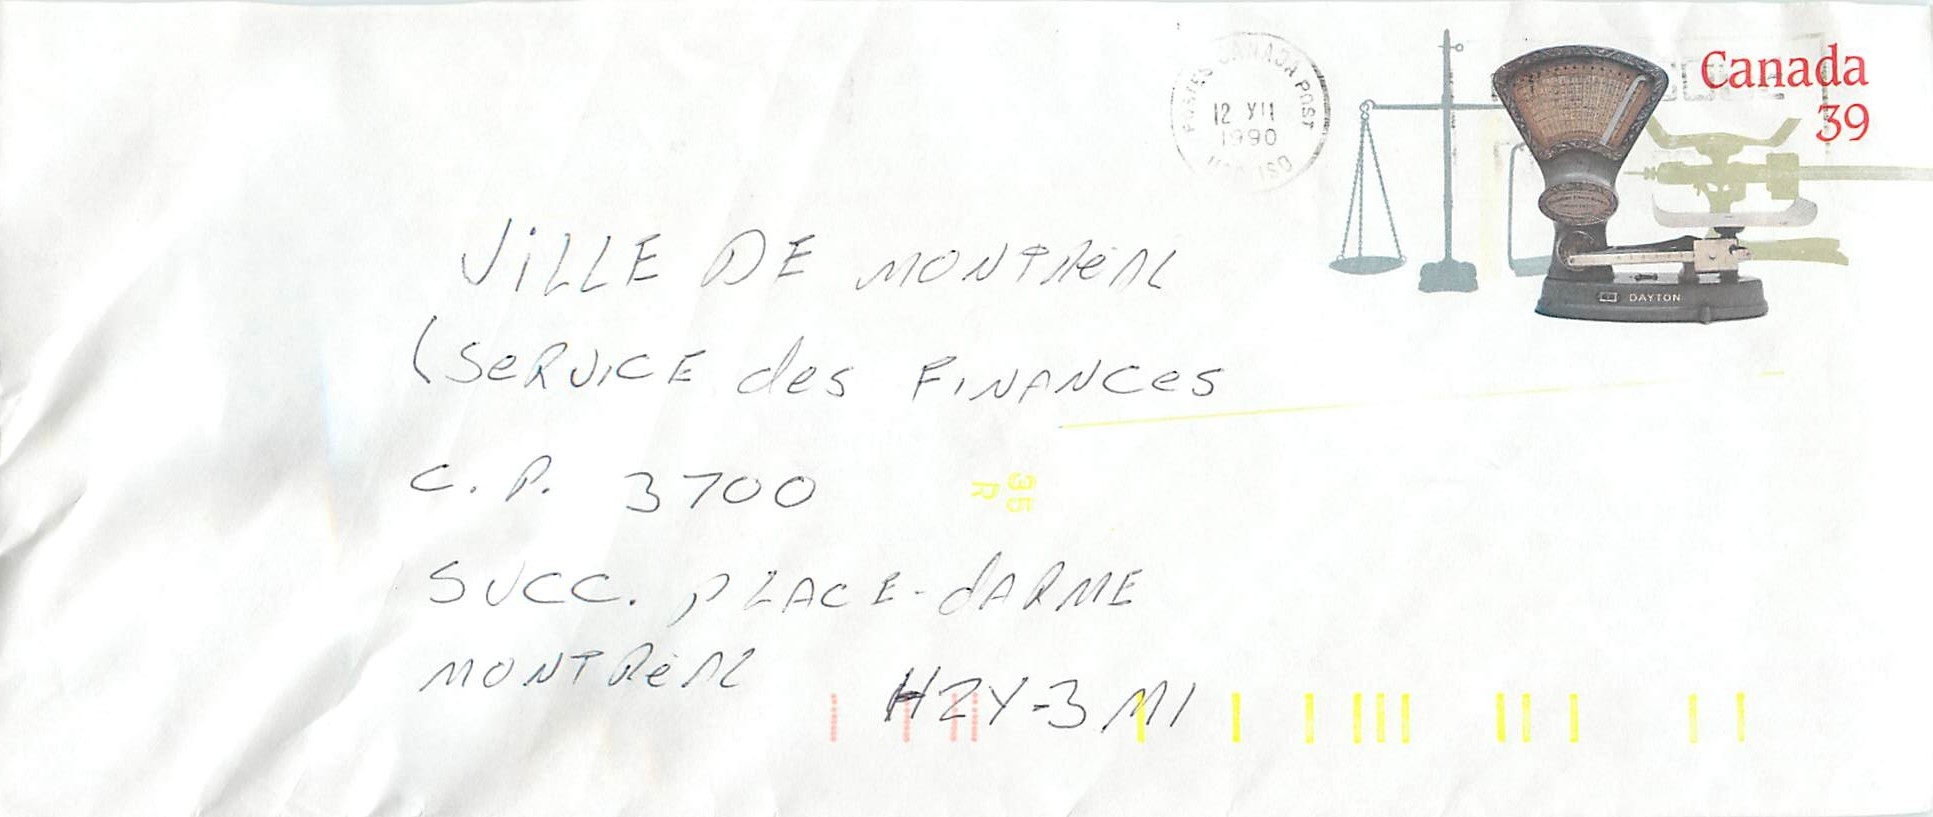 POSTES CANADA POST
12 VII
1990
Canada
39
DAYTON
VILLE DE MONTRÉAL
(SERVICE des FINANCES
C. P. 3700
35
R
SUCC. PLACE-dARME
MONTRÉAL
H2Y-3M1